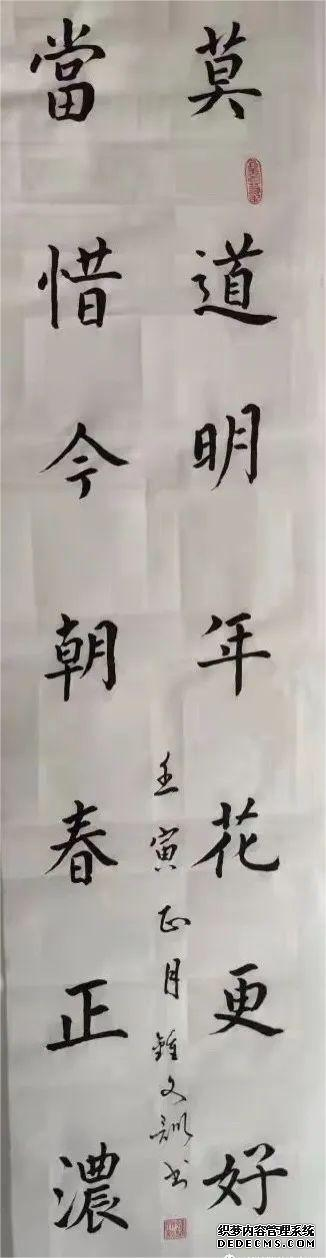 莫道明年花更好
當惜今朝春正濃
壬寅正月鍾文訓書
织梦内容管理系统
DEDECMS.COM